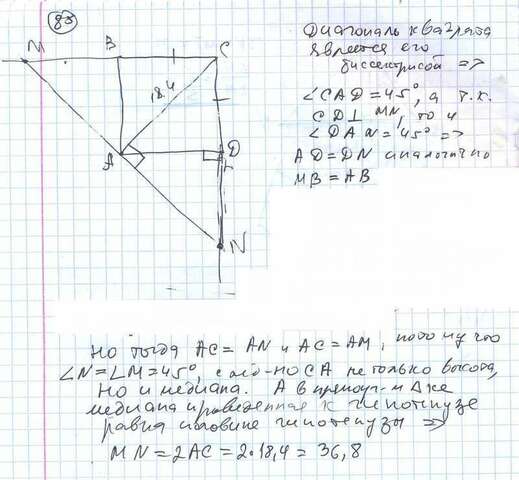 83
M B C
18.4
A D
N
Диагональ квадрата
является его
биссектрисой =>
∠CAD=45°, а т.к.
CD⊥MN, то и
∠DAN=45° =>
AD=DN аналогично
MB=AB
Но тогда AC=AN и AC=AM, потому что
∠N=∠M=45°, след-но CA не только высота,
но и медиана. А в прямоуг-м Δ-ке
медиана проведенная к гипотенузе
равна половине гипотенузы =>
MN=2AC=2·18,4=36,8